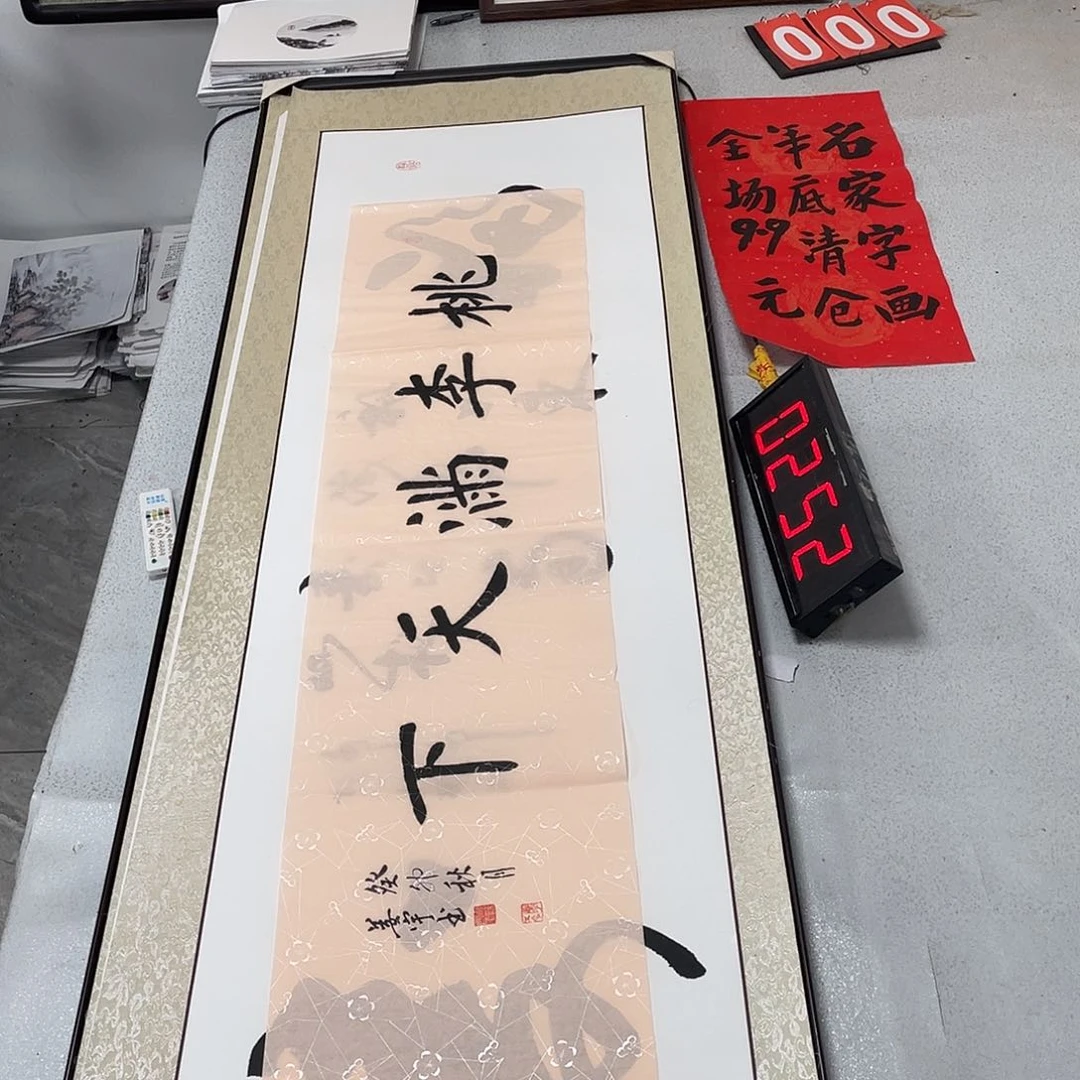 桃李滿天下
癸卯秋月
名家字画
年底清仓
全场9.9元
000
0252